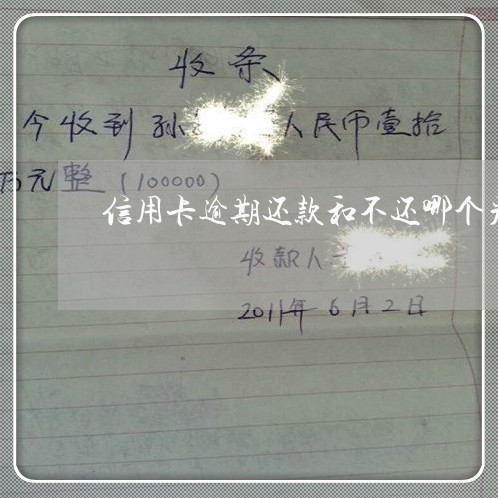 收条
今收到孙 人民币壹拾
万元整(100000)
信用卡逾期还款和不还哪个
收款人
2011年6月2日